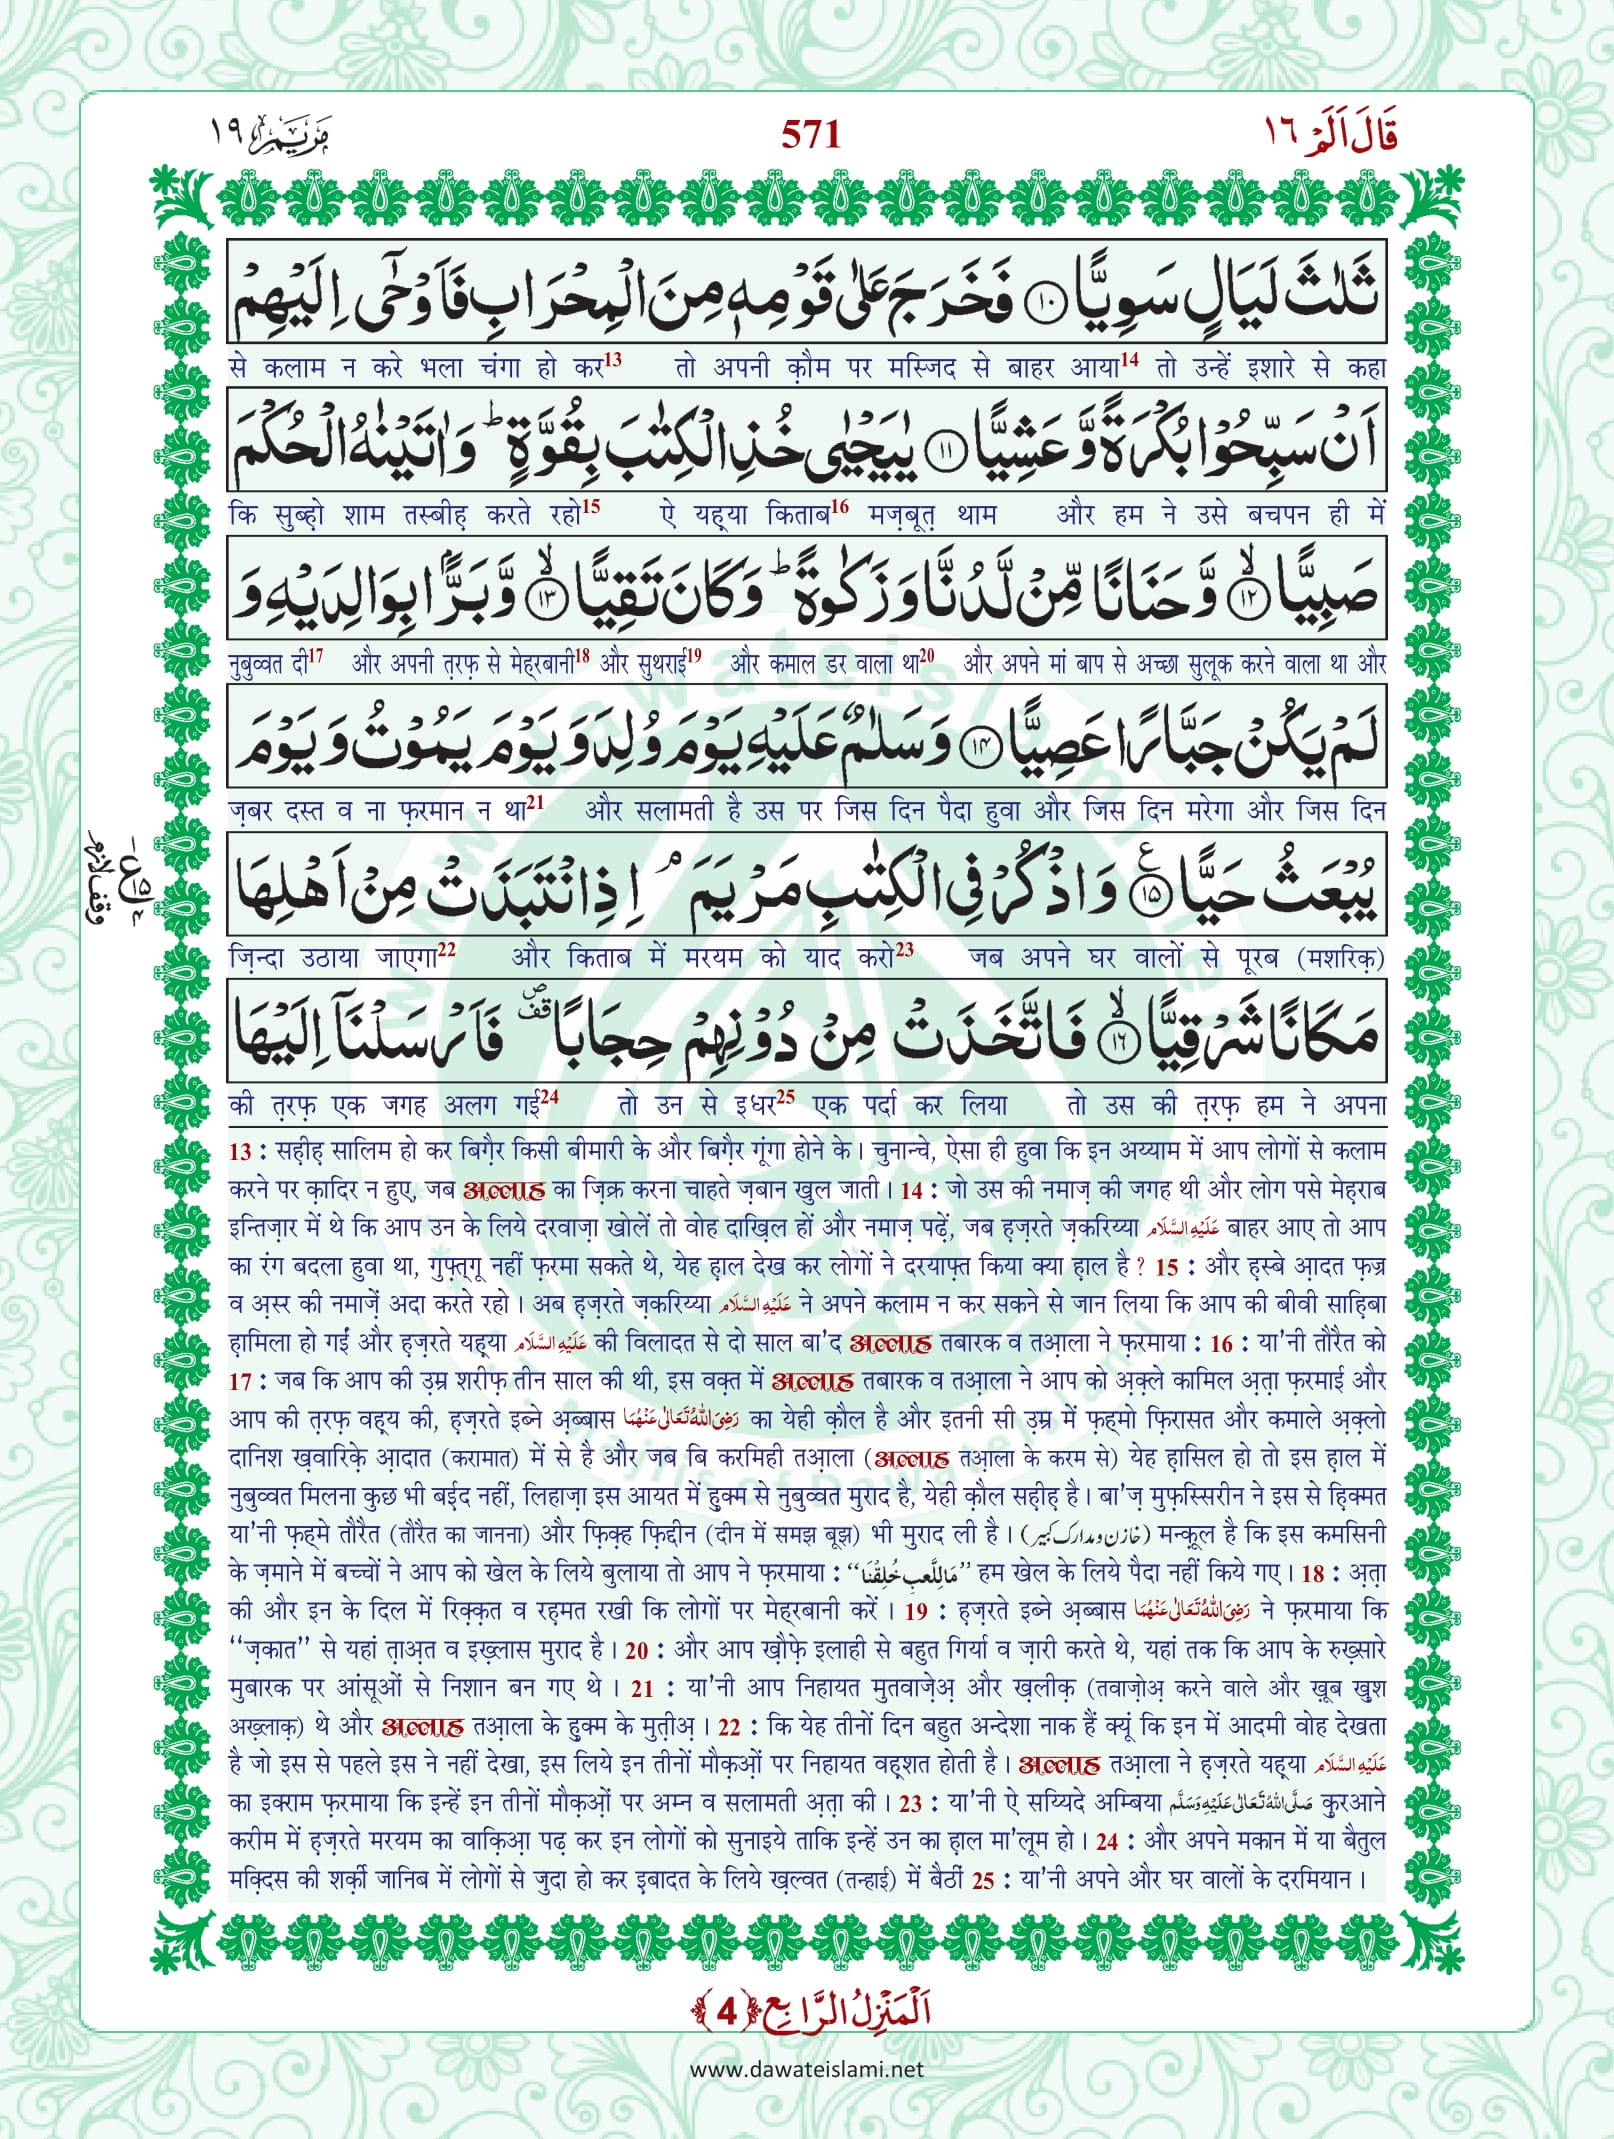 مَرْيَم ١٩
571
قَالَ اَلَمْ ١٦
ثَلٰثَ لَيَالٍ سَوِيًّا ﴿١٠﴾ فَخَرَجَ عَلٰى قَوْمِهٖ مِنَ الْمِحْرَابِ فَاَوْحٰۤى اِلَيْهِمْ
से कलाम न करे भला चंगा हो कर13 तो अपनी क़ौम पर मस्जिद से बाहर आया14 तो उन्हें इशारे से कहा
اَنْ سَبِّحُوْا بُكْرَةً وَّ عَشِيًّا ﴿١١﴾ يٰيَحْيٰى خُذِ الْكِتٰبَ بِقُوَّةٍ ؕ وَ اٰتَيْنٰهُ الْحُكْمَ
कि सुब्हो शाम तस्बीह़ करते रहो15 ऐ यह़्या किताब16 मज़बूत़ थाम और हम ने उसे बचपन ही में
صَبِيًّا ﴿ۙ١٢﴾ وَّ حَنَانًا مِّنْ لَّدُنَّا وَ زَكٰوةً ؕ وَ كَانَ تَقِيًّا ﴿ۙ١٣﴾ وَّ بَرًّۢا بِوَالِدَيْهِ وَ
नुबुव्वत दी17 और अपनी त़रफ़ से मेहरबानी18 और सुथराई19 और कमाल डर वाला था20 और अपने मां बाप से अच्छा सुलूक करने वाला था और
لَمْ يَكُنْ جَبَّارًا عَصِيًّا ﴿١٤﴾ وَ سَلٰمٌ عَلَيْهِ يَوْمَ وُلِدَ وَ يَوْمَ يَمُوْتُ وَ يَوْمَ
ज़बर दस्त व ना फ़रमान न था21 और सलामती है उस पर जिस दिन पैदा हुवा और जिस दिन मरेगा और जिस दिन
يُبْعَثُ حَيًّا ﴿١٥﴾ وَ اذْكُرْ فِي الْكِتٰبِ مَرْيَمَ ۘ اِذِ انْتَبَذَتْ مِنْ اَهْلِهَا
ज़िन्दा उठाया जाएगा22 और किताब में मरयम को याद करो23 जब अपने घर वालों से पूरब (मशरिक़)
مَكَانًا شَرْقِيًّا ﴿ۙ١٦﴾ فَاتَّخَذَتْ مِنْ دُوْنِهِمْ حِجَابًا ۪۫ فَاَرْسَلْنَاۤ اِلَيْهَا
की त़रफ़ एक जगह अलग गई24 तो उन से इधर25 एक पर्दा कर लिया तो उस की त़रफ़ हम ने अपना
13 : सह़ीह़ सालिम हो कर बिग़ैर किसी बीमारी के और बिग़ैर गूंगा होने के। चुनान्चे, ऐसा ही हुवा कि इन अय्याम में आप लोगों से कलाम
करने पर क़ादिर न हुए, जब अल्लाह का ज़िक्र करना चाहते ज़बान खुल जाती। 14 : जो उस की नमाज़ की जगह थी और लोग पसे मेह़राब
इन्तिज़ार में थे कि आप उन के लिये दरवाज़ा खोलें तो वोह दाख़िल हों और नमाज़ पढ़ें, जब ह़ज़रते ज़करिय्या عَلَيْهِ السَّلَام बाहर आए तो आप
का रंग बदला हुवा था, गुफ़्त्गू नहीं फ़रमा सकते थे, येह हाल देख कर लोगों ने दरयाफ़्त किया क्या ह़ाल है ? 15 : और ह़स्बे आ़दत फ़ज्र
व अ़स्र की नमाज़ें अदा करते रहो। अब ह़ज़रते ज़करिय्या عَلَيْهِ السَّلَام ने अपने कलाम न कर सकने से जान लिया कि आप की बीवी साहिबा
ह़ामिला हो गईं और ह़ज़रते यह़्या عَلَيْهِ السَّلَام की विलादत से दो साल बा'द अल्लाह तबारक व तआ़ला ने फ़रमाया : 16 : या'नी तौरैत को
17 : जब कि आप की उ़म्र शरीफ़ तीन साल की थी, इस वक़्त में अल्लाह तबारक व तआ़ला ने आप को अ़क़्ले कामिल अ़त़ा फ़रमाई और
आप की त़रफ़ वह़्य की, ह़ज़रते इब्ने अ़ब्बास رَضِيَ اللّٰهُ تَعَالٰى عَنْهُمَا का येही क़ौल है और इतनी सी उ़म्र में फ़ह्मो फ़िरासत और कमाले अ़क़्लो
दानिश ख़वारिक़े आ़दात (करामात) में से है और जब बि करमिही तआ़ला (अल्लाह तआ़ला के करम से) येह ह़ासिल हो तो इस हाल में
नुबुव्वत मिलना कुछ भी बई़द नहीं, लिहाज़ा इस आयत में हु़क्म से नुबुव्वत मुराद है, येही क़ौल सह़ीह़ है। बा'ज़ मुफ़स्सिरीन ने इस से ह़िक्मत
या'नी फ़ह्मे तौरैत (तौरैत का जानना) और फ़िक़्ह फ़िद्दीन (दीन में समझ बूझ) भी मुराद ली है। (خازن و مدارک کبیر) मन्कूल है कि इस कमसिनी
के ज़माने में बच्चों ने आप को खेल के लिये बुलाया तो आप ने फ़रमाया : ‘‘مَا لِلَّعِبِ خُلِقْنَا’’ हम खेल के लिये पैदा नहीं किये गए। 18 : अ़त़ा
की और इन के दिल में रिक़्क़त व रह़मत रखी कि लोगों पर मेहरबानी करें। 19 : ह़ज़रते इब्ने अ़ब्बास رَضِيَ اللّٰهُ تَعَالٰى عَنْهُمَا ने फ़रमाया कि
‘‘ज़कात’’ से यहां त़ाअ़त व इख़्लास मुराद है। 20 : और आप ख़ौफ़े इलाही से बहुत गिर्या व ज़ारी करते थे, यहां तक कि आप के रुख़्सारे
मुबारक पर आंसूओं से निशान बन गए थे। 21 : या'नी आप निहायत मुतवाज़ेअ़ और ख़लीक़ (तवाज़ोअ़ करने वाले और ख़ूब खुश
अख्लाक़) थे और अल्लाह तआ़ला के हु़क्म के मुत़ीअ़। 22 : कि येह तीनों दिन बहुत अन्देशा नाक हैं क्यूं कि इन में आदमी वोह देखता
है जो इस से पहले इस ने नहीं देखा, इस लिये इन तीनों मौक़ओ़ं पर निहायत वह़्शत होती है। अल्लाह तआ़ला ने ह़ज़रते यह़्या عَلَيْهِ السَّلَام
का इक्राम फ़रमाया कि इन्हें इन तीनों मौक़ओ़ं पर अम्न व सलामती अ़त़ा की। 23 : या'नी ऐ सय्यिदे अम्बिया صَلَّى اللّٰهُ تَعَالٰى عَلَيْهِ وَسَلَّم कुरआने
करीम में ह़ज़रते मरयम का वाक़िआ़ पढ़ कर इन लोगों को सुनाइये ताकि इन्हें उन का ह़ाल मा'लूम हो। 24 : और अपने मकान में या बैतुल
मक़्दिस की शर्क़ी जानिब में लोगों से जुदा हो कर इबादत के लिये ख़ल्वत (तन्हाई) में बैठीं 25 : या'नी अपने और घर वालों के दरमियान।
وقف لازم
اَلْمَنْزِلُ الرَّابِع ﴿4﴾
www.dawateislami.net